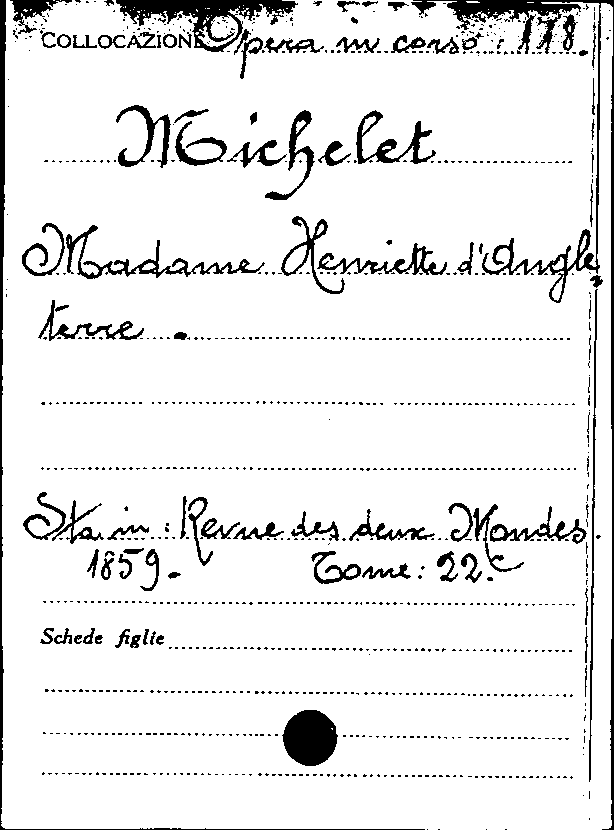 COLLOCAZIONE Opera in corso : 118.
Michelet
Madame Henriette d'Angle
terre.
Sta in : Revue des deux Mondes.
1859. Tome : 22.e
Schede figlie